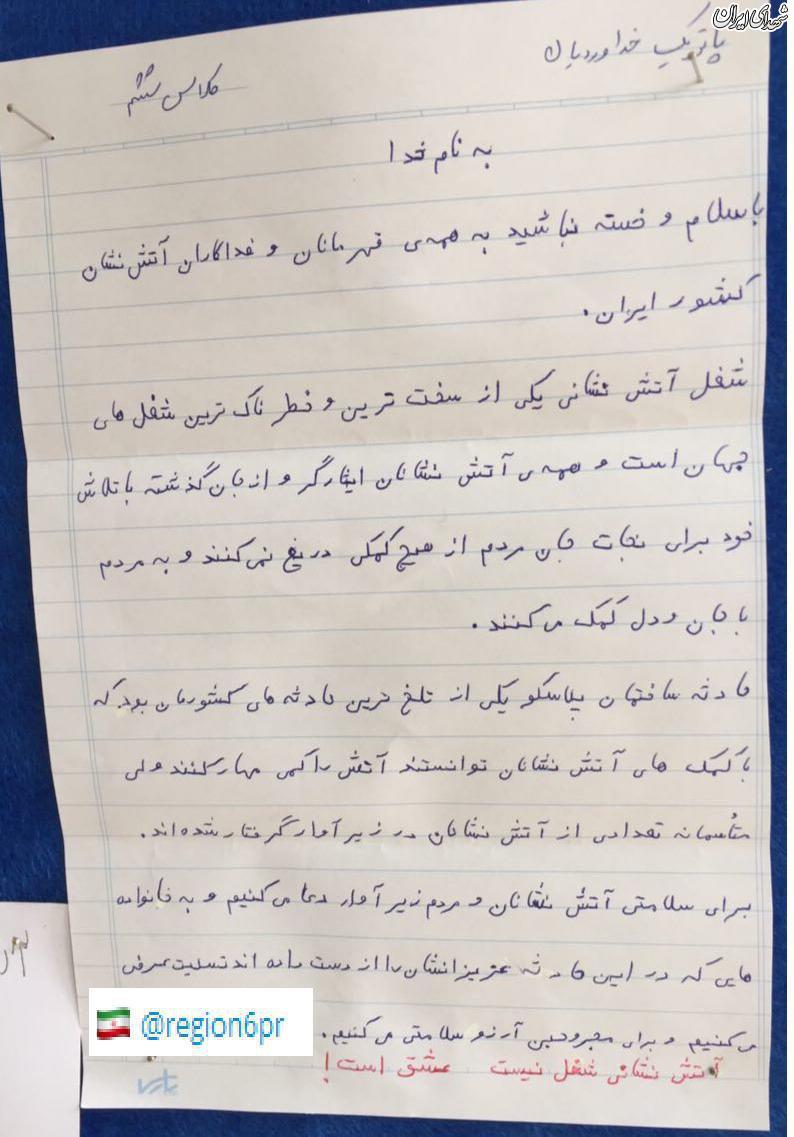 شهدای ایران
پاتریک خداوردیان
کلاس ششم
به نام خدا
با سلام و خسته نباشید به همه‌ی قهرمانان و فداکاران آتش نشان
کشور ایران.
شغل آتش نشانی یکی از سخت ترین و خطر ناک ترین شغل های
جهان است و همه‌ی آتش نشانان ایثارگر و از جان گذشته با تلاش
خود برای نجات جان مردم از هیچ کمکی دریغ نمی‌کنند و به مردم
با جان و دل کمک می‌کنند.
حادثه ساختمان پلاسکو یکی از تلخ ترین حادثه های کشورمان بود که
با کمک های آتش نشانان توانستند آتش را کمی مهار کنند ولی
متأسفانه تعدادی از آتش نشانان در زیر آوار گرفتار شده‌اند.
برای سلامتی آتش نشانان و مردم زیر آوار دعا می‌کنیم و به خانواده
هایی که در این حادثه عزیزانشان را از دست داده اند تسلیت عرض
می‌کنیم و برای مجروحین آرزو سلامتی می‌کنیم.
آتش نشانی شغل نیست عشق است!
@region6pr